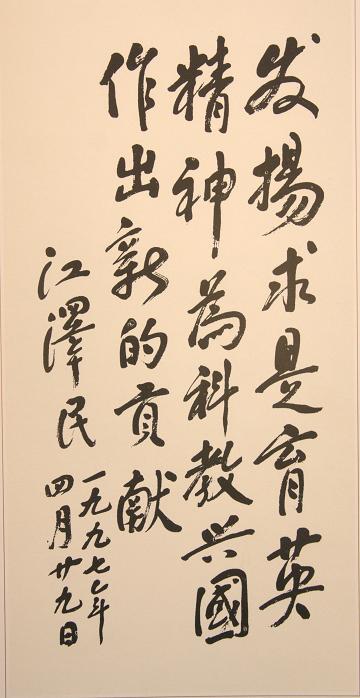 发揚求是育英
精神為科教兴國
作出新的贡献
江澤民
一九九七年
四月廿九日